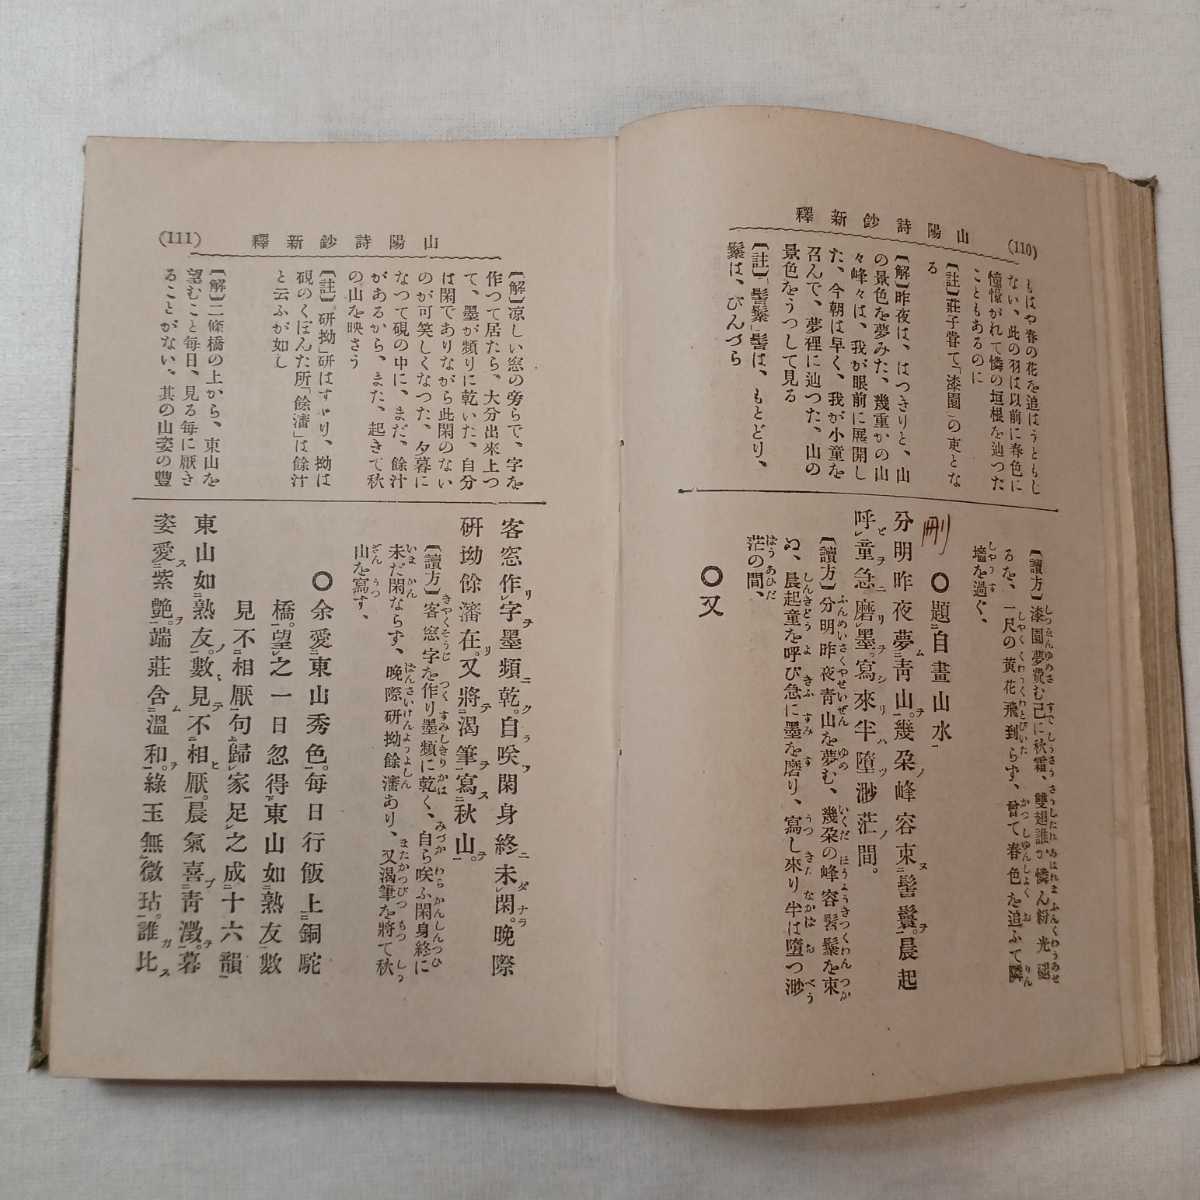 山陽詩鈔新釋
(110)
もはや春の花を追はうともし
ない、此の羽は以前に春色に
憧憬がれて憐の垣根を辿つた
こともあるのに
【註】莊子嘗て「漆園」の吏とな
る
【解】昨夜は、はつきりと、山
の景色を夢みた、幾重かの山
々峰々は、我が眼前に展開し
た、今朝は早く、我が小童を
召んで、夢裡に辿つた、山の
景色をうつして見る
【註】「髻鬟」髻は、もとどり、
鬟は、びんづら
【讀方】漆園夢費む已に秋霜、雙翅誰か憐ん粉光磁
るを、一尺の黄花飛到らず、曾て春色を追ふて隣
墻を過ぐ、
刪
〇題自畫山水
分明昨夜夢青山。幾朶峰容束髻鬟。晨起
呼童急磨墨。寫來半墮渺茫間。
【讀方】分明昨夜青山を夢む、幾朶の峰容髻鬟を束
ぬ、晨起童を呼び急に墨を磨り、寫し來り半は墮つ渺
茫の間、
〇又
山陽詩鈔新釋
(111)
【解】凉しい窓の旁らで、字を
作つて居たら、大分出來上つ
て、墨が頻りに乾いた、自分
は閑でありながら此閑のない
のが可笑しくなつた、夕暮に
なつて硯の中に、まだ、餘汁
があるから、また、起きて秋
の山を映さう
【註】研拗」研はすゞり、拗は
硯のくぼんた所「餘瀋」は餘汁
と云ふが如し
【解】二條橋の上から、東山を
望むこと毎日、見る毎に厭き
ることがない、其の山姿の豐
客窓作字墨頻乾。自咲閑身終未閑。晩際
研拗餘瀋在。又將渴筆寫秋山。
【讀方】客窓字を作り墨頻に乾く、自ら咲ふ閑身終に
未だ閑ならず、晩際研拗餘瀋あり、又渴筆を將て秋
山を寫す、
〇余愛東山秀色。毎日行飯上銅駝
橋。望之一日忽得東山如熟友數
見不相厭句歸家足之成十六韻
東山如熟友。數見不相厭。晨氣喜青澂。暮
姿愛紫艷。端莊舍溫和。綠玉無微玷。誰比